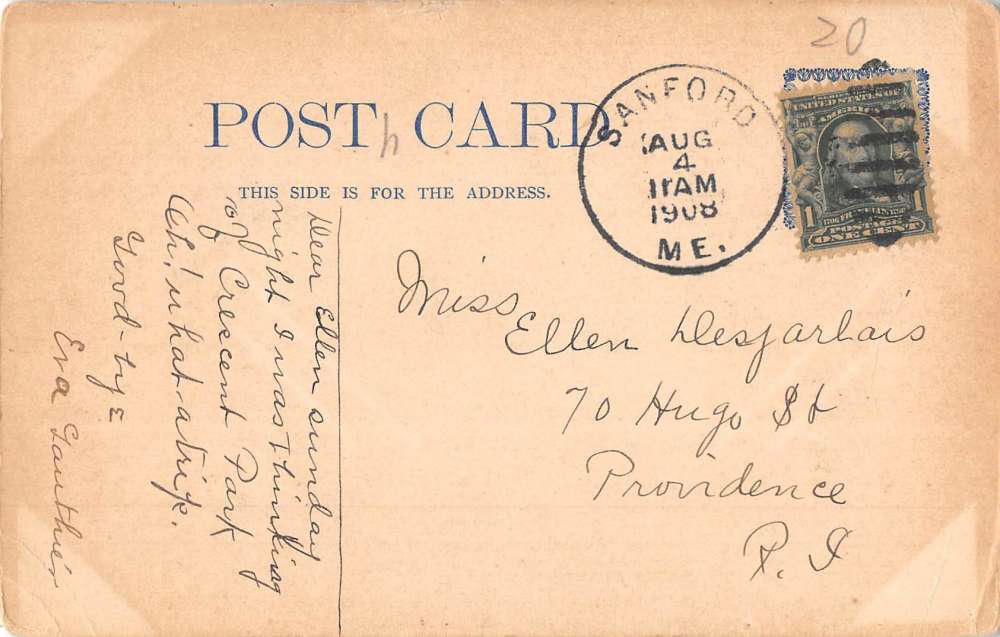 20
POST CARD
h
THIS SIDE IS FOR THE ADDRESS.
SANFORD
AUG
4
11AM
1908
ME.
SERIES 1902
UNITED STATES OF
AMERICA
1
1
1706 FRANKLIN 1790
POSTAGE
ONE CENT
Dear Ellen sunday
night I was thinking
of Crescent Park
Oh! what-a trip.
Good-bye
Eva Gauthier
Miss
Ellen Desjarlais
70 Hugo St
Providence
R. I